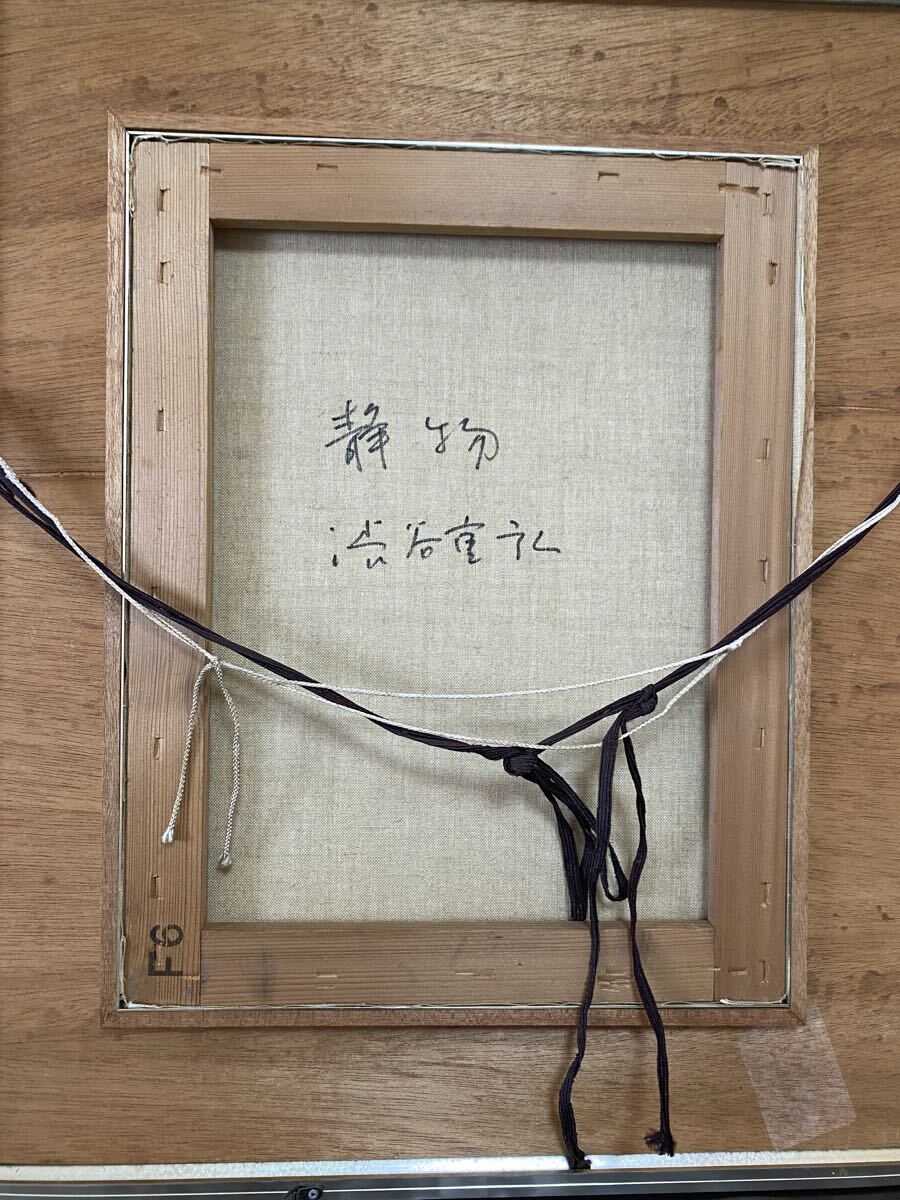 静物
渋谷重礼
F6